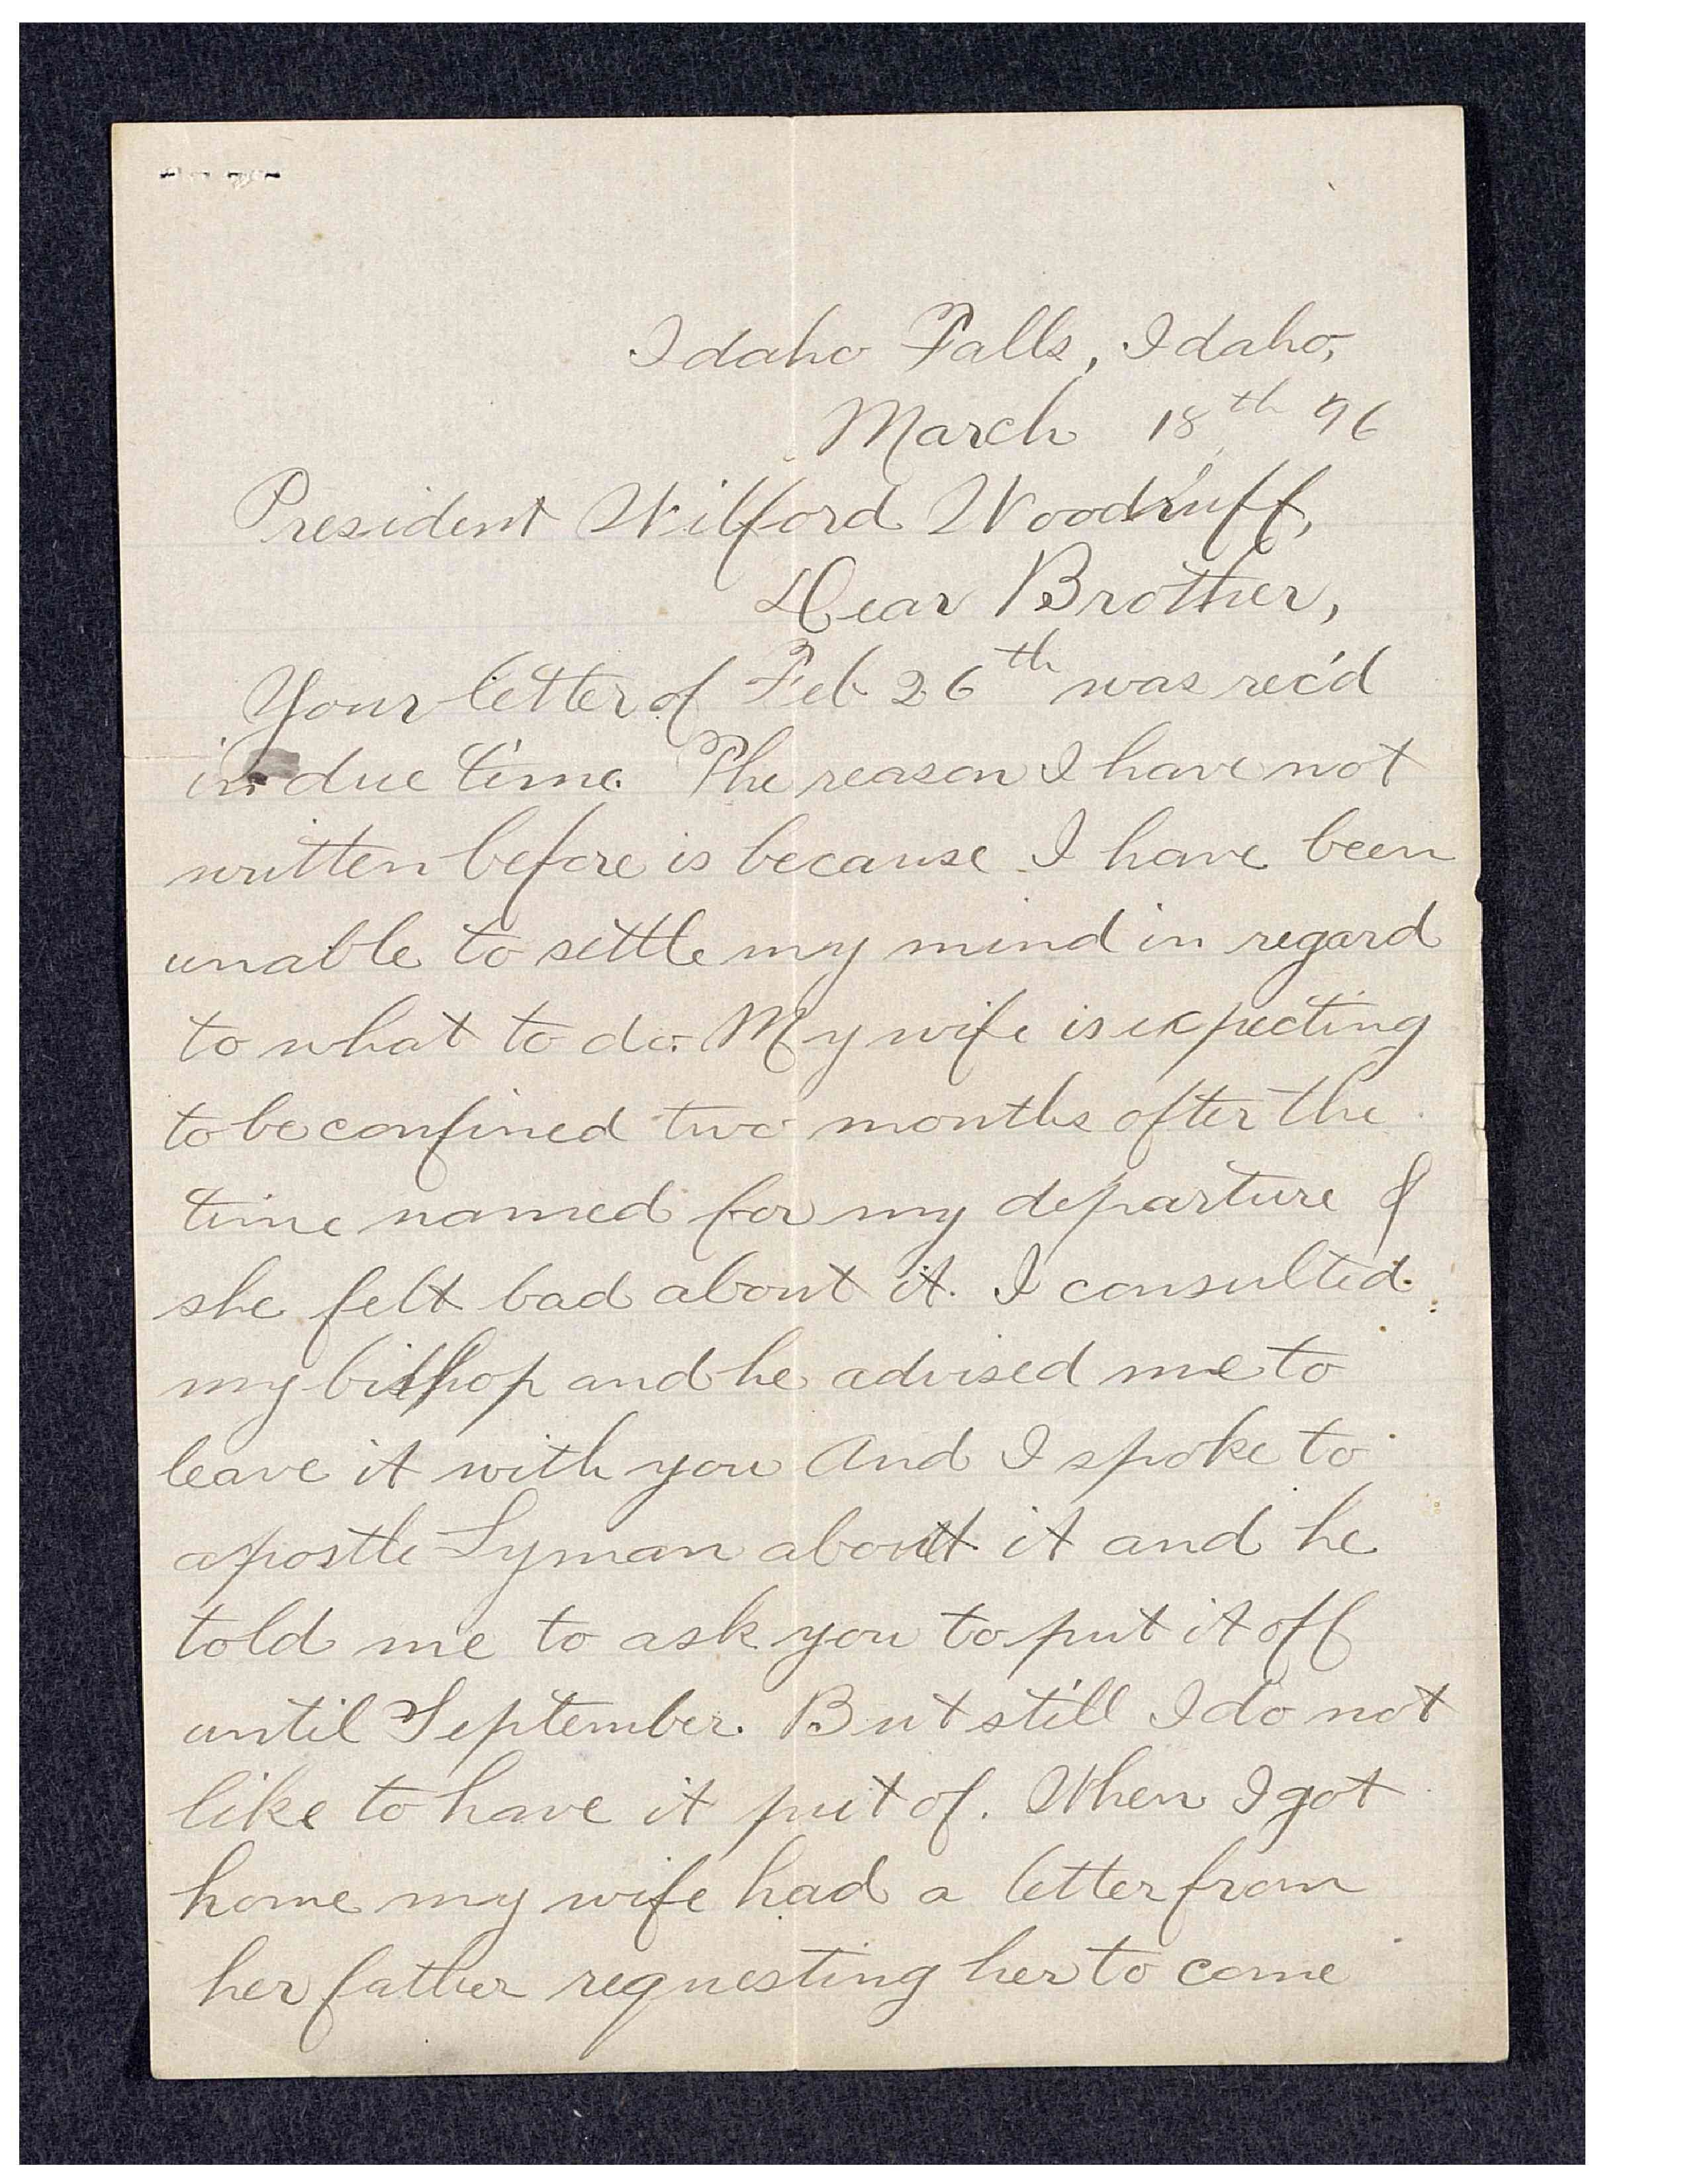 Idaho Falls, Idaho,
March 18th 96
President Wilford Woodruff,
Dear Brother,
Your letter of Feb 26th was rec'd
in due time. The reason I have not
written before is because I have been
unable to settle my mind in regard
to what to do. My wife is expecting
to be confined two months after the
time named for my departure &
she felt bad about it. I consulted
my bishop and he advised me to
leave it with you And I spoke to
apostle Lyman about it and he
told me to ask you to put it off
until September. But still I do not
like to have it put of. When I got
home my wife had a letter from
her father requesting her to come